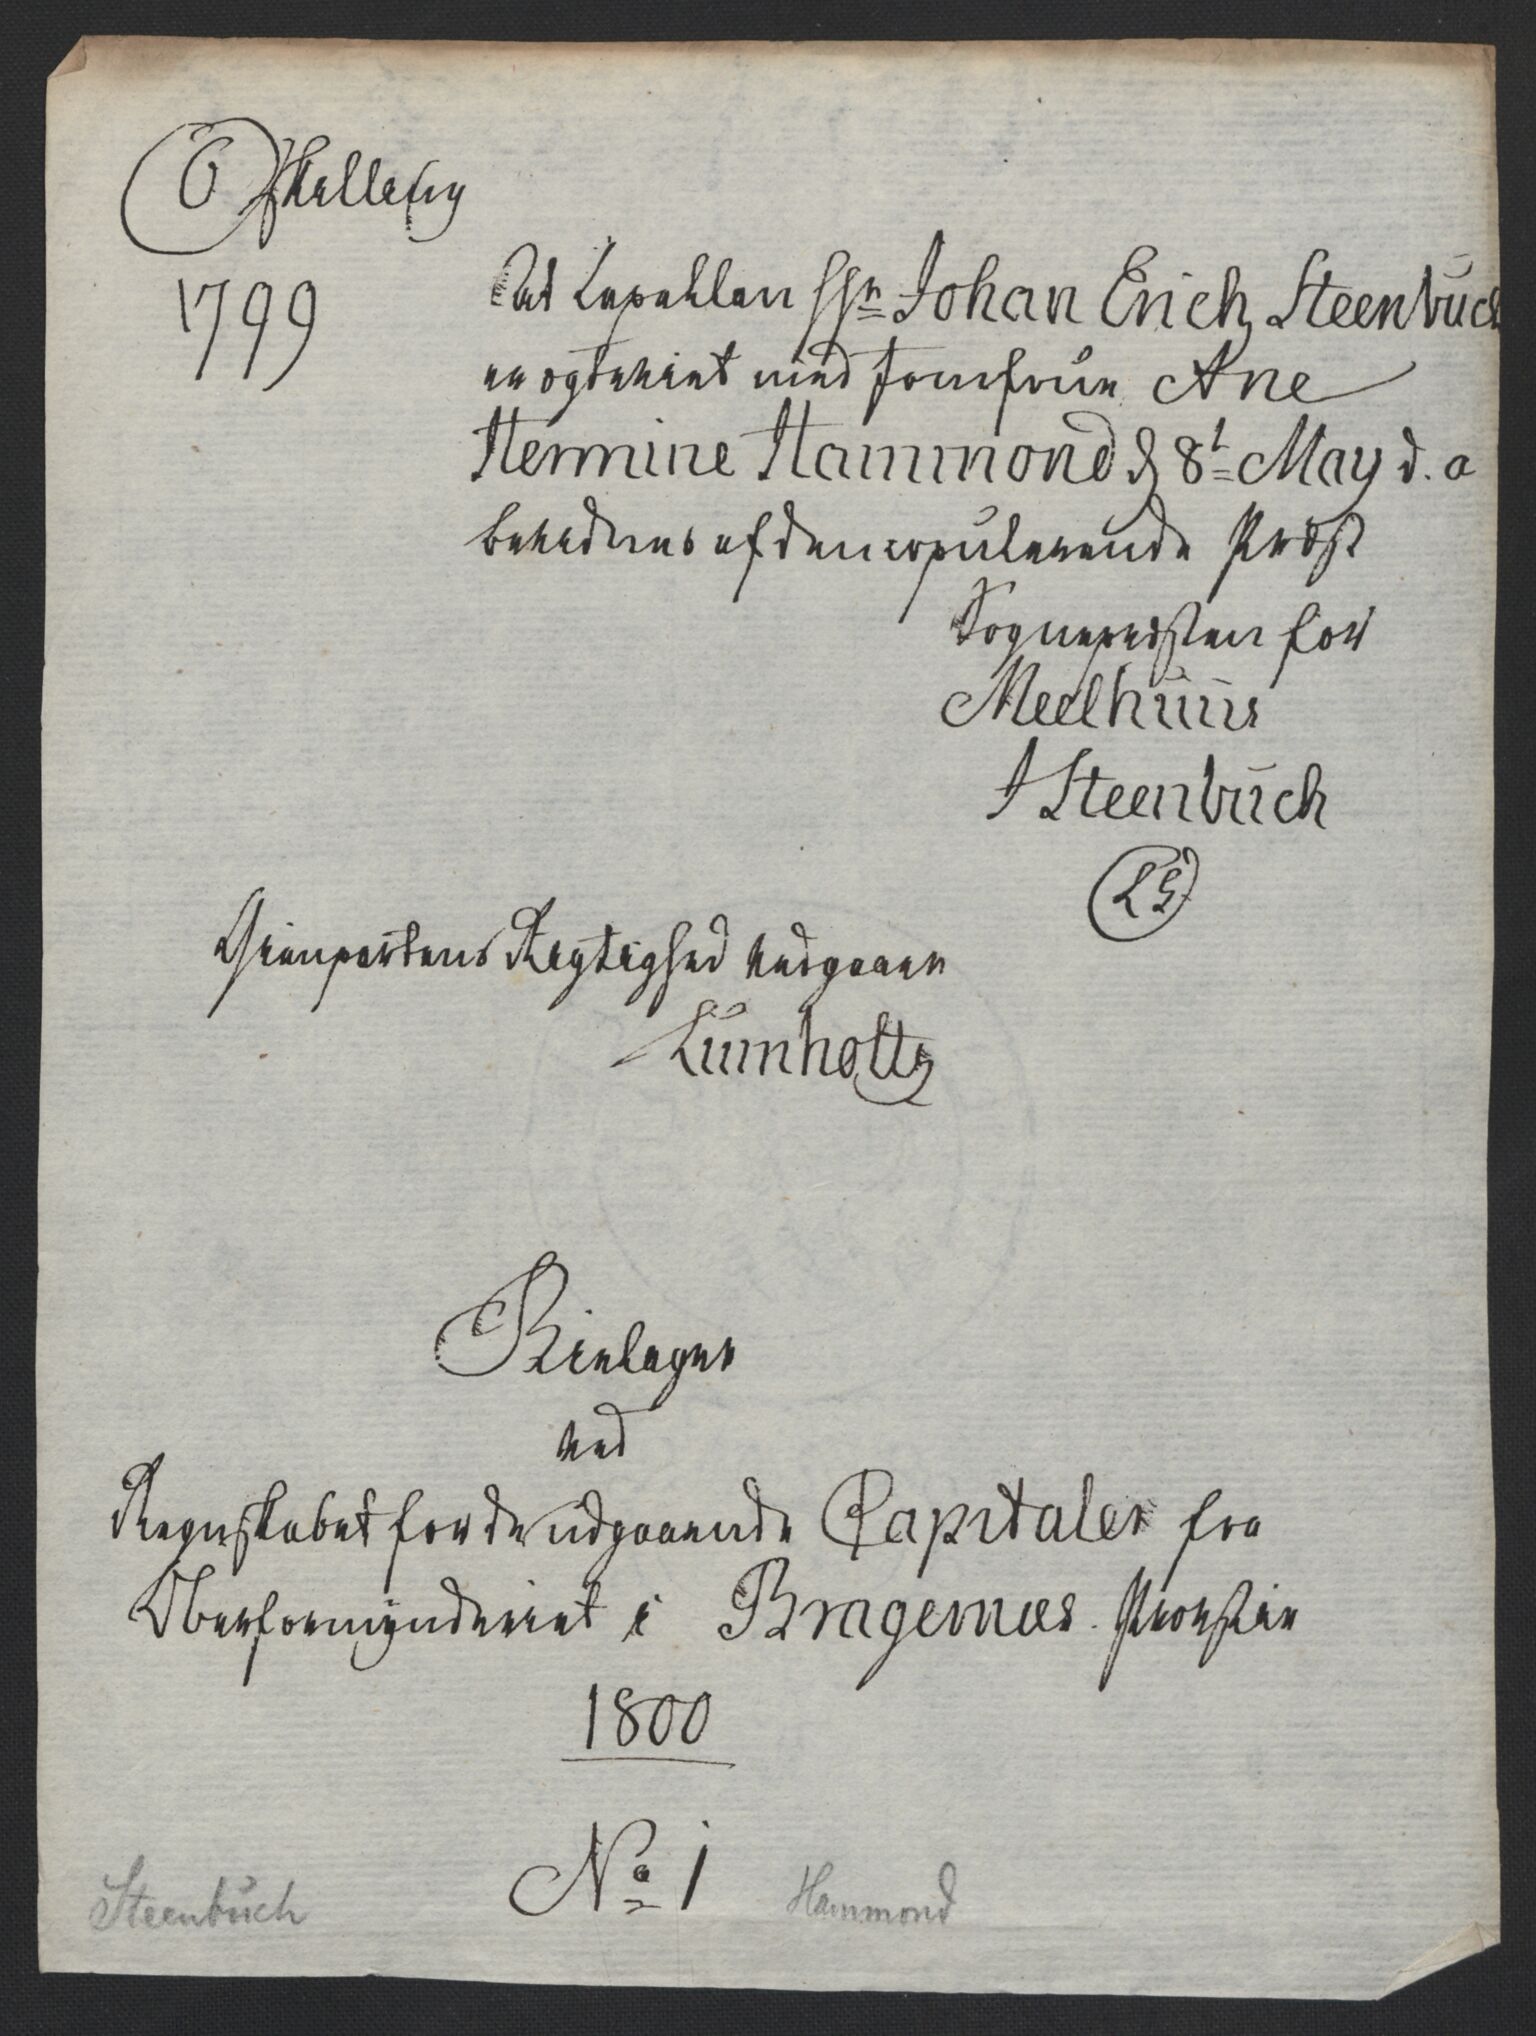 6 Skilling
1799
At Capellan Hr Johan Erich Steenbuch
er ægteviet med Jomfrue Ane
Hermine Hammond d 8t May d. a
bevidnes af den copulerende Præst
Sognepræsten for
Meelhuus
J Steenbuch
LS
Gienpartens Rigtighed vedgaaer
Lumholtz
Bielager
ved
Regnskabet for de udgaaende Capitaler fra
Overformynderiet i Bragernæs Provstie
1800
No 1
Steenbuch
Hammond